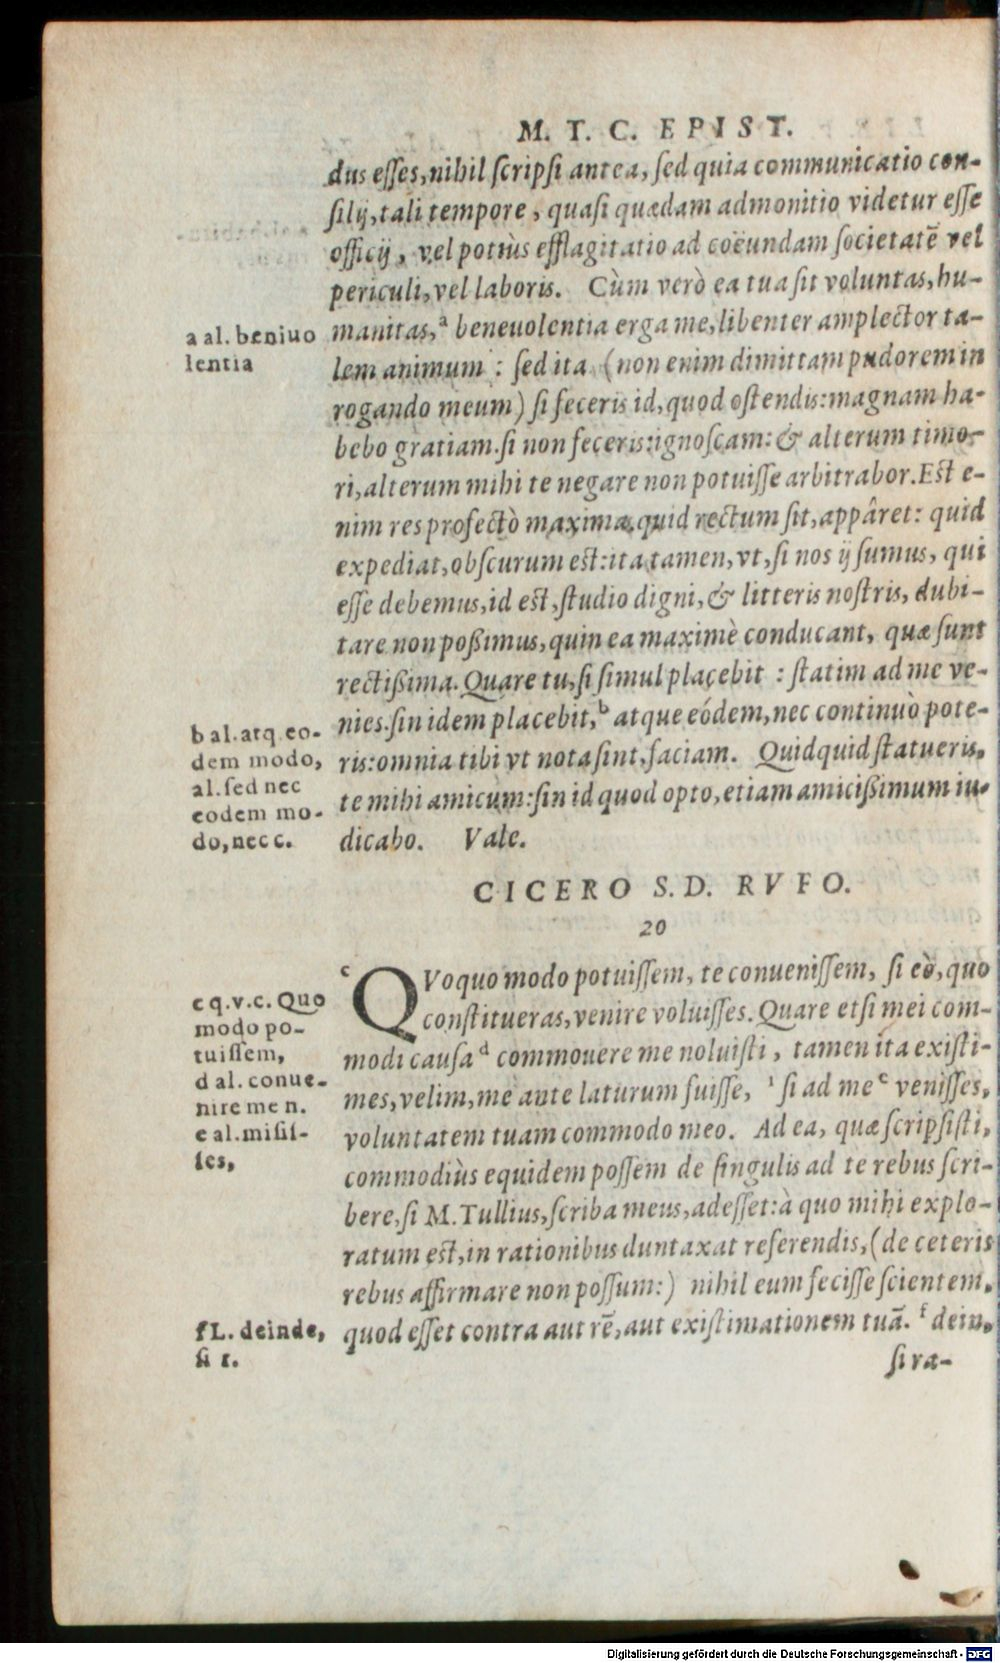 M. T. C. EPIST.
dus esses, nihil scripsi antea, sed quia communicatio con-
silij, tali tempore, quasi quædam admonitio videtur esse
officij, vel potiùs efflagitatio ad coëundam societatē vel
periculi, vel laboris. Cùm verò ea tua sit voluntas, hu-
manitas, ª beneuolentia erga me, libenter amplector ta-
lem animum: sed ita (non enim dimittam pudorem in
rogando meum) si feceris id, quod ostendis: magnam ha-
bebo gratiam. si non feceris: ignoscam: & alterum timo-
ri, alterum mihi te negare non potuisse arbitrabor. Est e-
nim res profectò maxima. quid rectum sit, appâret: quid
expediat, obscurum est: ita tamen, vt, si nos ij sumus, qui
esse debemus, id est, studio digni, & litteris nostris, dubi-
tare non poßimus, quin ea maximè conducant, quæ sunt
rectißima. Quare tu, si simul placebit : statim ad me ve-
nies. sin idem placebit, b atque eódem, nec continuò pote-
ris: omnia tibi vt nota sint, faciam. Quidquid statueris,
te mihi amicum: sin id quod opto, etiam amicißimum iu-
dicabo. Vale.
a al. beniuo
lentia
b al. atq. eo-
dem modo,
al. sed nec
eodem mo-
do, nec c.
CICERO S. D. RVFO.
20
c QVoquo modo potuissem, te conuenissem, si eò, quo
constitueras, venire voluisses. Quare etsi mei com-
modi causa d commouere me noluisti, tamen ita existi-
mes, velim, me ante laturum fuisse, ¹ si ad me e venisses,
voluntatem tuam commodo meo. Ad ea, quæ scripsisti,
commodiùs equidem possem de singulis ad te rebus scri-
bere, si M. Tullius, scriba meus, adesset: à quo mihi explo-
ratum est, in rationibus duntaxat referendis, (de ceteris
rebus affirmare non possum:) nihil eum fecisse scientem,
quod esset contra aut rē, aut existimationem tuā. f dein,
si ra-
c q. v. c. Quo
modo po-
tuissem,
d al. conue-
nire me n.
e al. misis-
ses,
f L. deinde,
si r.
Digitalisierung gefördert durch die Deutsche Forschungsgemeinschaft - DFG